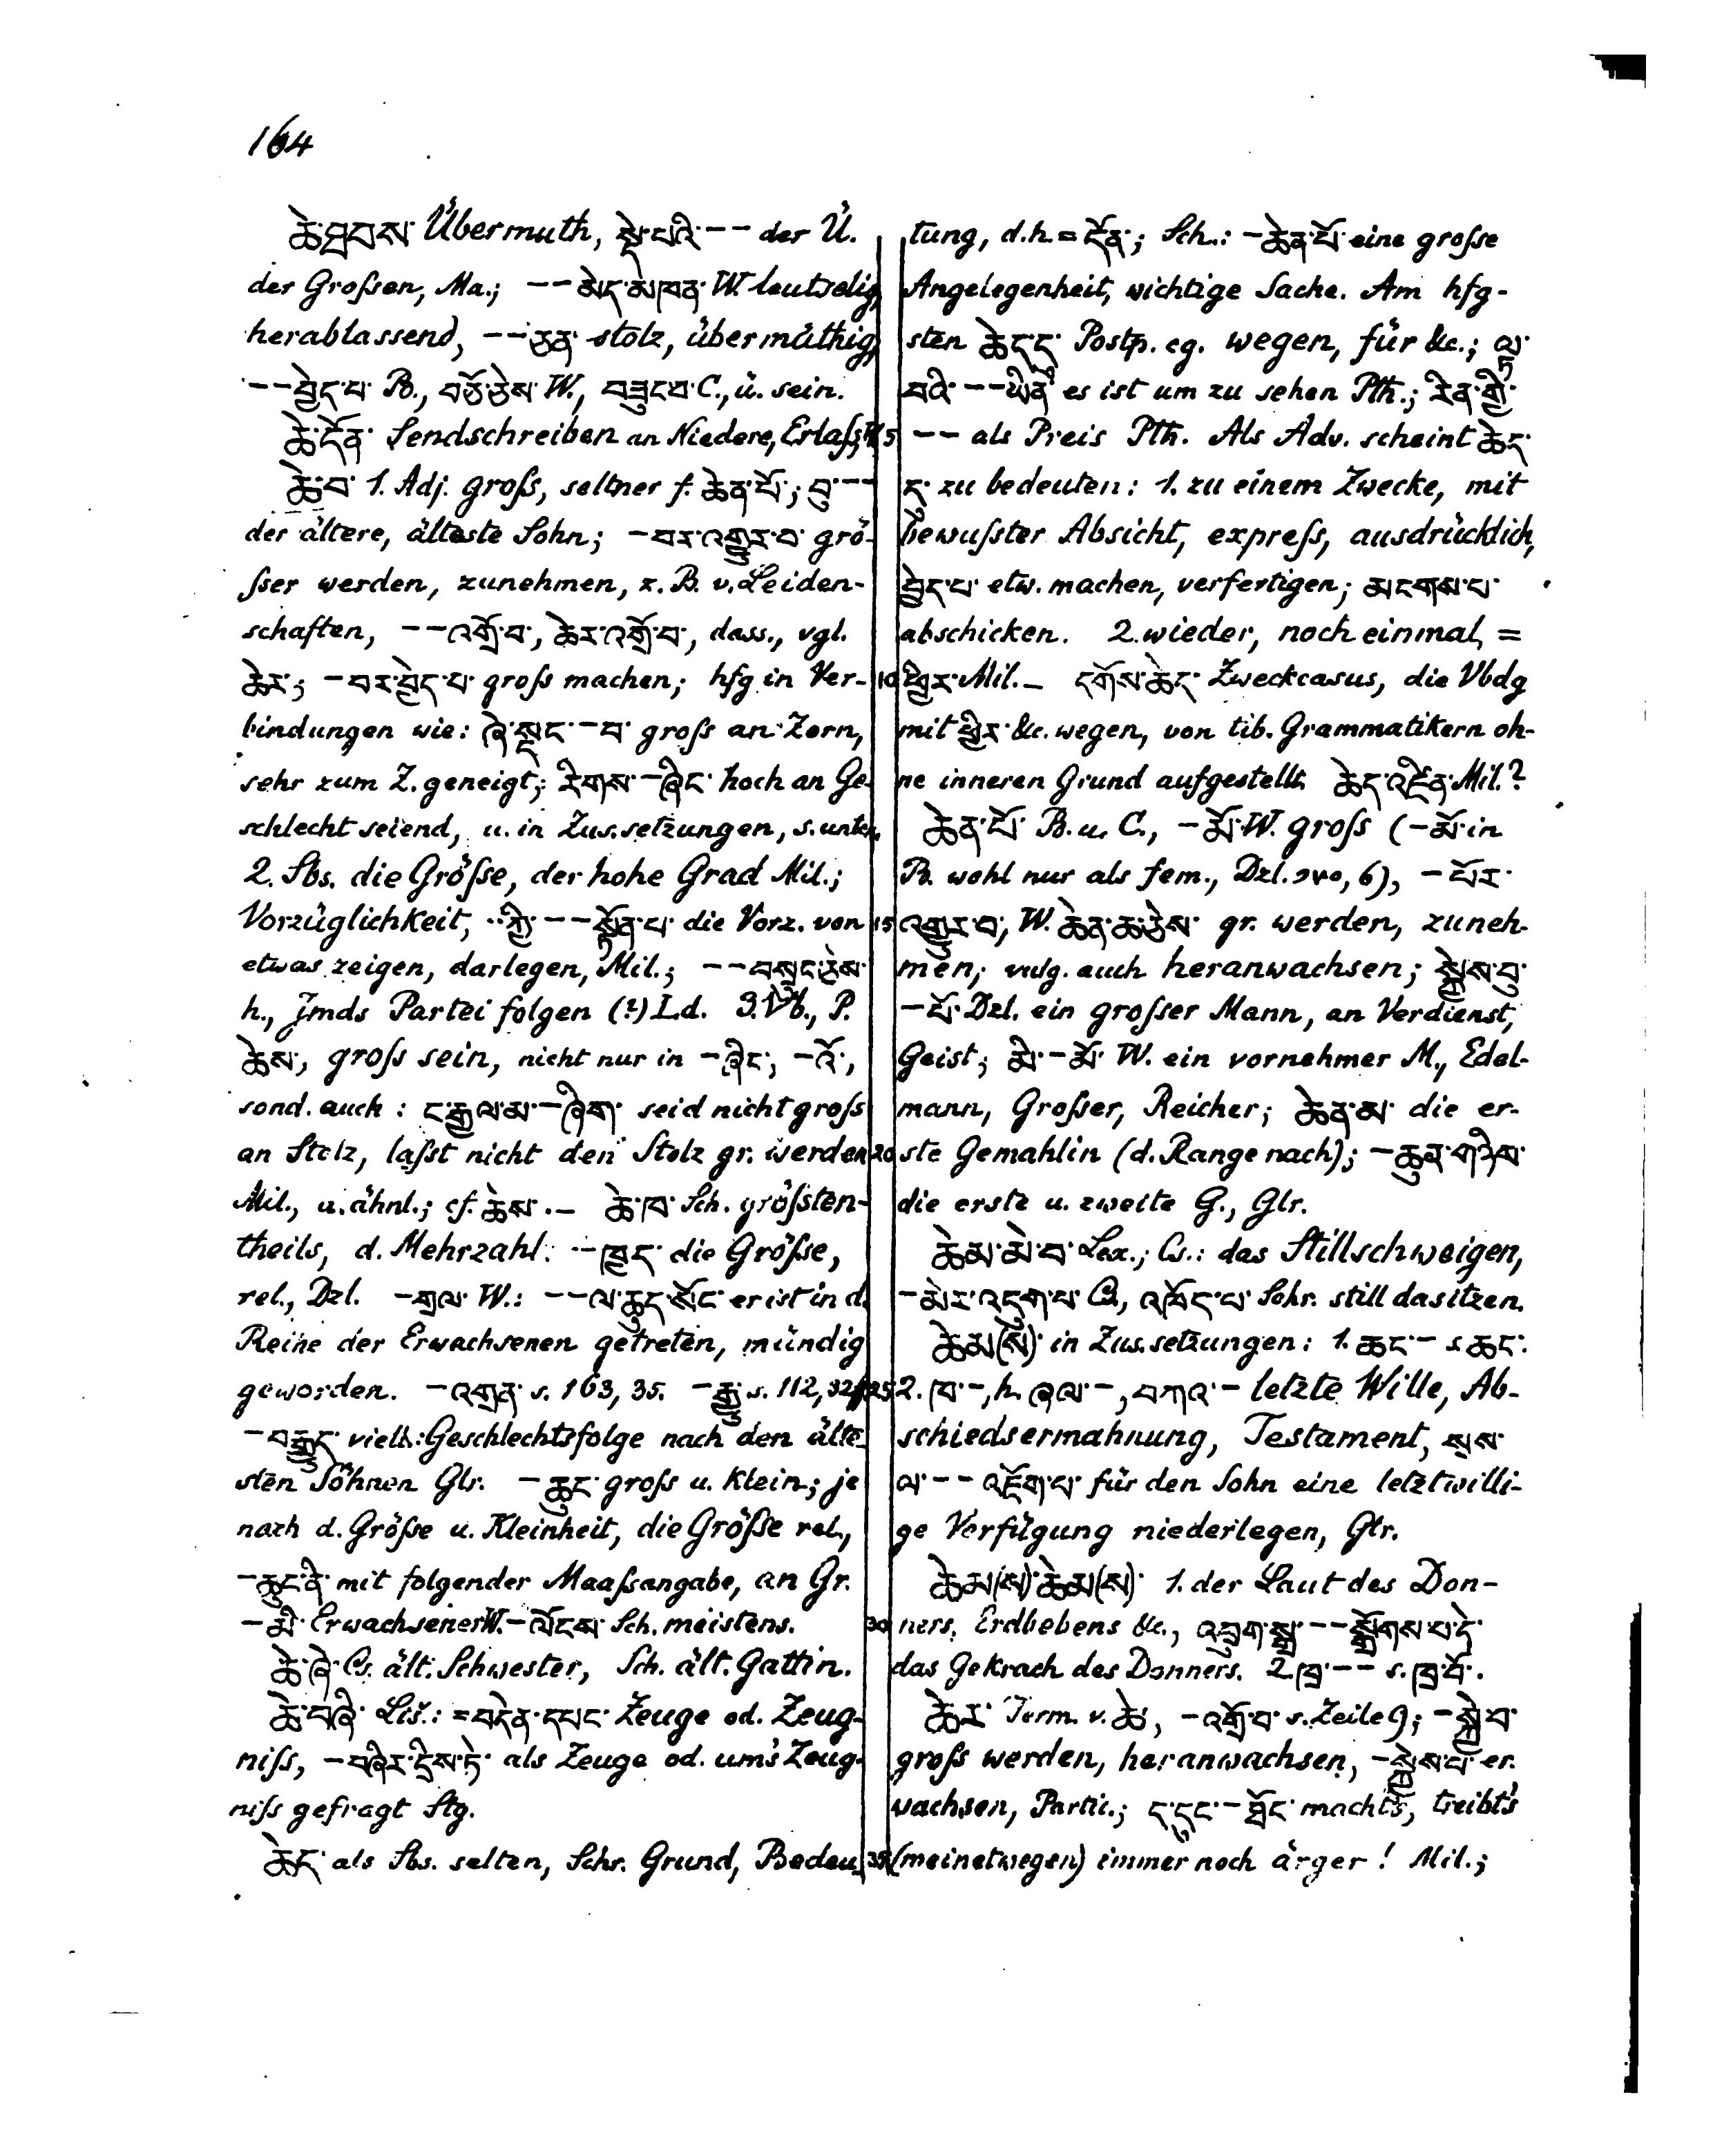 164
ཆེ་ཐབས་ Übermuth, སྡེ་པའི་ -- der Ü.
der Großen, Ma.; -- མེད་མཁན་ W. leutselig,
herablassend, -- ཅན་ stolz, übermüthig,
-- བྱེད་པ་ B., བཅོ་ཅེས་ W., བཟུང་བ་ C., ü. sein.
ཆེ་དོན་ Sendschreiben an Niedere, Erlaß,
ཆེ་བ་ 1. Adj. groß, seltner f. ཆེན་པོ་; བུ་ --
der ältere, älteste Sohn; - བར་འགྱུར་བ་ grö-
ßer werden, zunehmen, z. B. v. Leiden-
schaften, -- འགྲོ་བ་, ཆེར་འགྲོ་བ་, dass., vgl.
ཆེར་; - བར་བྱེད་པ་ groß machen; hfg in Ver-
bindungen wie: ཞེ་སྡང་ - བ་ groß an Zorn,
sehr zum Z. geneigt; རིགས་ - ཞིང་ hoch an Ge-
schlecht seiend, u. in Zus.setzungen, s. unten.
2. Sbs. die Größe, der hohe Grad Mil.;
Vorzüglichkeit, ..ཀྱི་ -- སྟོན་པ་ die Vorz. von
etwas zeigen, darlegen, Mil.; -- བསྲུང་ཅེས་
h., Jmds Partei folgen (?) Ld. 3. Vb., P.
ཆེས་, groß sein, nicht nur in - ཞིང་, - འོ་,
sond. auch: ང་རྒྱལ་མ་ - ཞིག་ seid nicht groß
an Stolz, laßt nicht den Stolz gr. werden
Mil., u. ähnl.; cf. ཆེས་. — ཆེ་ཁ་ Sch. größten-
theils, d. Mehrzahl. - ཁྱད་ die Größe,
rel., Dzl. - གྲལ་ W.: -- ལ་ཆུད་སོང་ er ist in d.
Reihe der Erwachsenen getreten, mündig
geworden. - འགྲན་ s. 163, 35. - རྒྱུ་ s. 112, 32
- བརྒྱུད་ viell.: Geschlechtsfolge nach den älte-
sten Söhnen Glr. - ཆུང་ groß u. klein; je
nach d. Größe u. Kleinheit, die Größe rel.,
- ཆུང་ནི་ mit folgender Maaßangabe, an Gr.
- མི་ Erwachsener W. - ལོངས་ Sch. meistens.
ཆེ་ཞེ་ Cs. ält. Schwester, Sch. ält. Gattin.
ཆེ་བཞི་ Liš.: = བདེན་དཔང་ Zeuge od. Zeug-
niß, - བཞིར་དྲིས་ཏེ་ als Zeuge od. um's Zeug-
niß gefragt Stg.
ཆེད་ als Sbs. selten, Schr. Grund, Bedeu-
tung, d.h. = དོན་; Sch.: - ཆེན་པོ་ eine große
Angelegenheit, wichtige Sache. Am hfg-
sten ཆེད་དུ་ Postp. cg. wegen, für &c.; ལྟ་
བའི་ -- ཡིན་ནོ་ es ist um zu sehen Pth.; རིན་གྱི་
5 -- als Preis Pth. Als Adv. scheint ཆེད་
དུ་ zu bedeuten: 1. zu einem Zwecke, mit
bewußter Absicht, expreß, ausdrücklich,
བྱེད་པ་ etw. machen, verfertigen; མངགས་པ་
abschicken. 2. wieder, noch einmal, =
10 ཕྱིར་ Mil. — དགོས་ཆེད་ Zweckcasus, die Vbdg
mit ཕྱིར་ &c. wegen, von tib. Grammatikern oh-
ne inneren Grund aufgestellt. ཆེད་འཛིན་ Mil.?
ཆེན་པོ་ B. u. C., - མོ་ W. groß (- མོ་ in
B. wohl nur als fem., Dzl. ༢༧༠, 6), - པོར་
15 འགྱུར་བ་, W. ཆེན་ཆ་ཅེས་ gr. werden, zuneh-
men; vulg. auch heranwachsen; སྐྱེས་བུ་
- པོ་ Dzl. ein großer Mann, an Verdienst,
Geist; མི་ - མོ་ W. ein vornehmer M., Edel-
mann, Großer, Reicher; ཆེན་མ་ die er-
20 ste Gemahlin (d. Range nach); - ཆུན་གཉིས་
die erste u. zweite G., Glr.
ཆེམ་མེ་བ་ Lex.; Cs.: das Stillschweigen,
- མེར་འདུག་པ་ Cs, འཁོད་པ་ Schr. still dasitzen.
ཆེམ(ས)་ in Zus.setzungen: 1. ཆང་ - s. ཆང་.
25 2. ཁ་ -, h. ཞལ་ -, བཀའ་ - letzte Wille, Ab-
schiedsermahnung, Testament, སྲས་
ལ་ -- འཇོག་པ་ für den Sohn eine letztwilli-
ge Verfügung niederlegen, Glr.
ཆེམ(ས)་ཆེམ(ས)་ 1. der Laut des Don-
30 ners, Erdbebens &c., འབྲུག་སྒྲ་ -- སྒྲོགས་པ་དེ་
das Gekrach des Donners. 2. ཁྲ་ -- s. ཁྲ་བོ་.
ཆེར་ Term. v. ཆེ་, - འགྲོ་བ་ s. Zeile 9; - སྐྱེ་བ་
groß werden, heranwachsen, - སྐྱེས་པ་ er-
wachsen, Partic.; ད་དུང་ - ཐོང་ macht's, treibt's
35 (meinetwegen) immer noch ärger! Mil.;